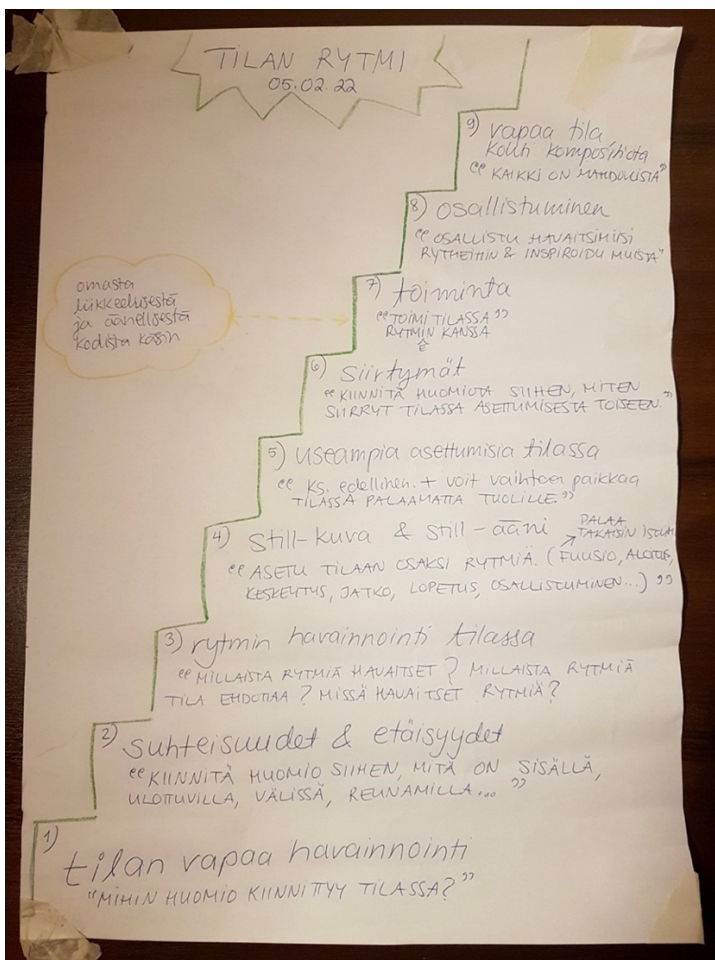 TILAN RYTMI
05.02.22
9) vapaa tila
kohti kompositiota
"KAIKKI ON MAHDOLLISTA"
8) osallistuminen
"OSALLISTU HAVAITSIMIISI
RYTMEIHIN & INSPIROIDU MUISTA"
omasta
liikkeellisestä
ja äänellisestä
kodista käsin
7) toiminta
"TOIMI TILASSA"
RYTMIN KANSSA
6) siirtymät
"KIINNITÄ HUOMIOTA SIIHEN, MITEN
SIIRRYT TILASSA ASETTUMISESTA TOISEEN."
5) useampia asettumisia tilassa
"Ks. edellinen. + voit vaihtaa paikkaa
TILASSA PALAAMATTA TUOLILLE."
4) still-kuva & still-ääni
PALAA
TAKAISIN
"ASETU TILAAN OSAKSI RYTMIÄ. (FUUSIO, ALOITUS,
KESKEYTYS, JATKO, LOPETUS, OSALLISTUMINEN...)"
3) rytmin havainnointi tilassa
"MILLAISTA RYTMIÄ HAVAITSET? MILLAISTA RYTMIÄ
TILA EHDOTTAA? MISSÄ HAVAITSET RYTMIÄ?
2) suhteisuudet & etäisyydet
"KIINNITÄ HUOMIO SIIHEN, MITÄ ON SISÄLLÄ,
ULOTTUVILLA, VÄLISSÄ, REUNAMILLA..."
1)
tilan vapaa havainnointi
"MIHIN HUOMIO KIINNITTYY TILASSA?"